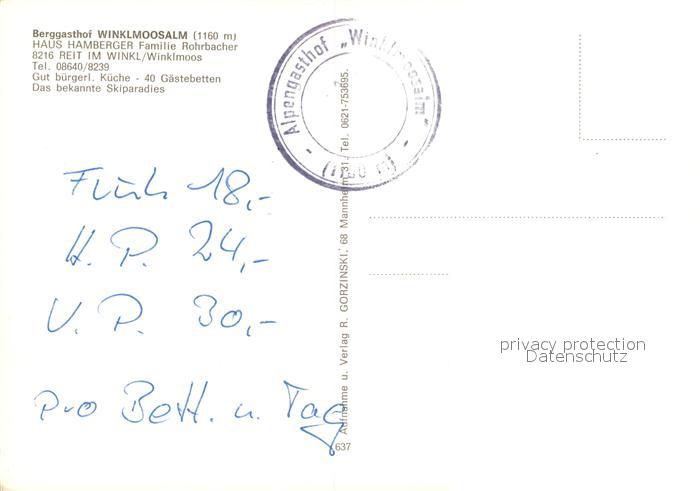 Berggasthof WINKLMOOSALM (1160 m)
HAUS HAMBERGER Familie Rohrbacher
8216 REIT IM WINKL/Winklmoos
Tel. 08640/8239
Gut bürgerl. Küche - 40 Gästebetten
Das bekannte Skiparadies
Alpengasthof „Winklmoosalm"
- (1160 m) -
Früh 18,-
H. P. 24,-
V. P. 30,-
pro Bett. u. Tag
Aufnahme u. Verlag R. GORZINSKI, 68 Mannheim 31, Tel. 0621-753695.
637
privacy protection
Datenschutz